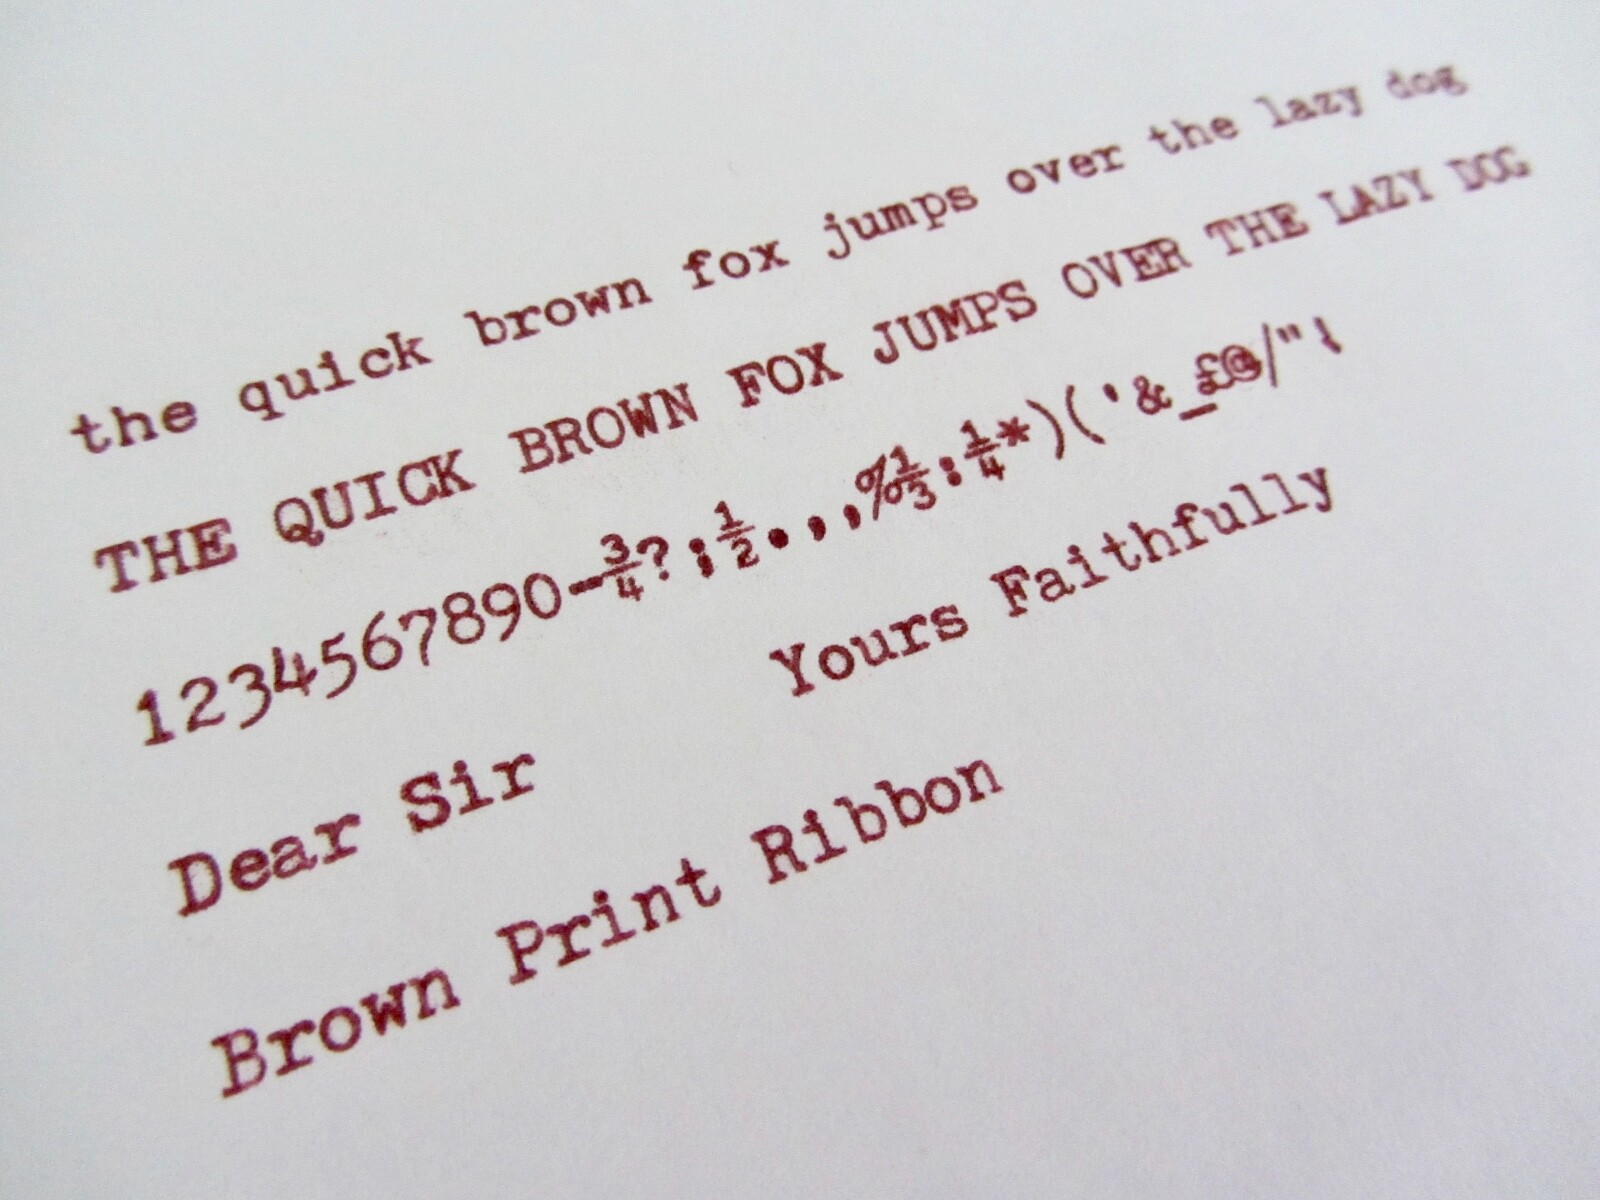 the quick brown fox jumps over the lazy dog
THE QUICK BROWN FOX JUMPS OVER THE LAZY DOG
1234567890-¾?;½.,,%⅓:¼*)('&_£@/"
Dear Sir Yours Faithfully
Brown Print Ribbon